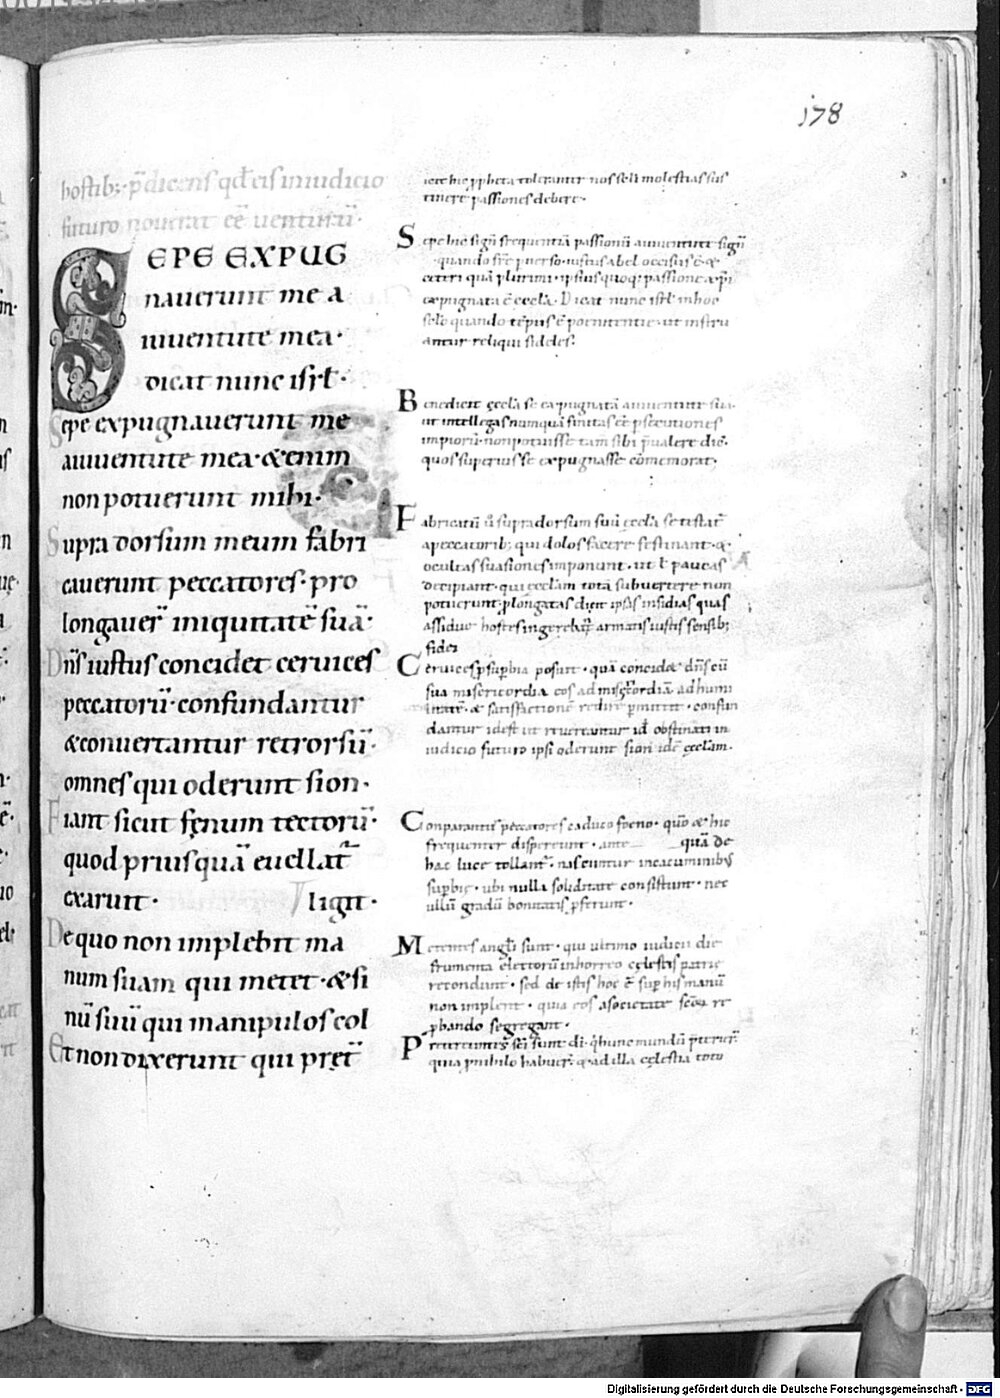 178
hostib; p̄dicens qd̄ eis in iudicio
futuro nouerat eē uenturū·
SEPE EXPUG
nauerunt me a
iuuentute mea·
dicat nunc isrl̄·
Sepe expugnauerunt me
aiuuentute mea· &enim
non potuerunt mihi·
Supra dorsum meum fabri
cauerunt peccatores· pro
longauer̄ iniquitatē suā·
Dn̄s iustus concidet ceruices
peccatorū· confundantur
& conuertantur retrorsū·
omnes qui oderunt sion·
Fiant sicut fęnum tectorū·
quod priusquā euellat̄
exaruit· ligit·
De quo non implebit ma
num suam qui metet· & si
nū suū qui manipulos col
Et non dixerunt qui pręt̄
tinere passiones debere·
Sepe hic signū frequentiā passionū a iuuentute signū
quando
ceteri quā plurimi· ipsius quoq; passione xp̄i
expugnata ē eccl̄a· Dicat nunc isrl̄ in hoc
sclo quando tēpus ē poenitentie· ut instru
antur reliqui fideles·
Benedicit ęccl̄a se expugnatā a iuuentute sua·
ut intellegas numquā finitas eē p̄secutiones
impiorū· non potuisse tam̄ sibi p̄ualere dic̄·
quos superius se expugnasse cōmemorat;
Fabricatū ū supra dorsum suū ęccl̄a se testat̄
a peccatorib; qui dolos facere festinant· &
ocultas suasiones imponunt· ut l̄ paucas
decipiant· qui eccl̄am totā subuertere non
potuerunt; plongatas dicit ipsas insidias quas
assidue hostes armatis iustis sensib;
fidei
Ceruices p supbia posuit· quā concidet dn̄s cū
sua misericordia eos ad mis̄cordiā ad humi
litatē· & satisfactionē redire p̄mittit· confun
dantur idest ut reuereantur id̄ obstinati in
iudicio futuro ipsi oderunt sion idē ęccl̄am·
Conparantur peccatores caduco foeno· quō & hic
frequenter dispereunt· ante quā de
hac luce tollant̄· nascuntur in cacuminibus
supbie· ubi nulla soliditate consistunt· nec
ullū gradū bonitatis p̄ferunt·
Metentes angl̄i sunt· qui ultimo iudicii die
frumenta electorū in horreo cęlestis patrie
recondunt· sed de istis hoc ē sup his manū
non implent· quia eos a societate
pbando segregant·
Pretereuntes sc̄i sunt di· q̄ hunc mundū p̄terier̄
quia p̄ nihilo habuer̄· & ad illa cęlestia toto
Digitalisierung gefördert durch die Deutsche Forschungsgemeinschaft · DFG